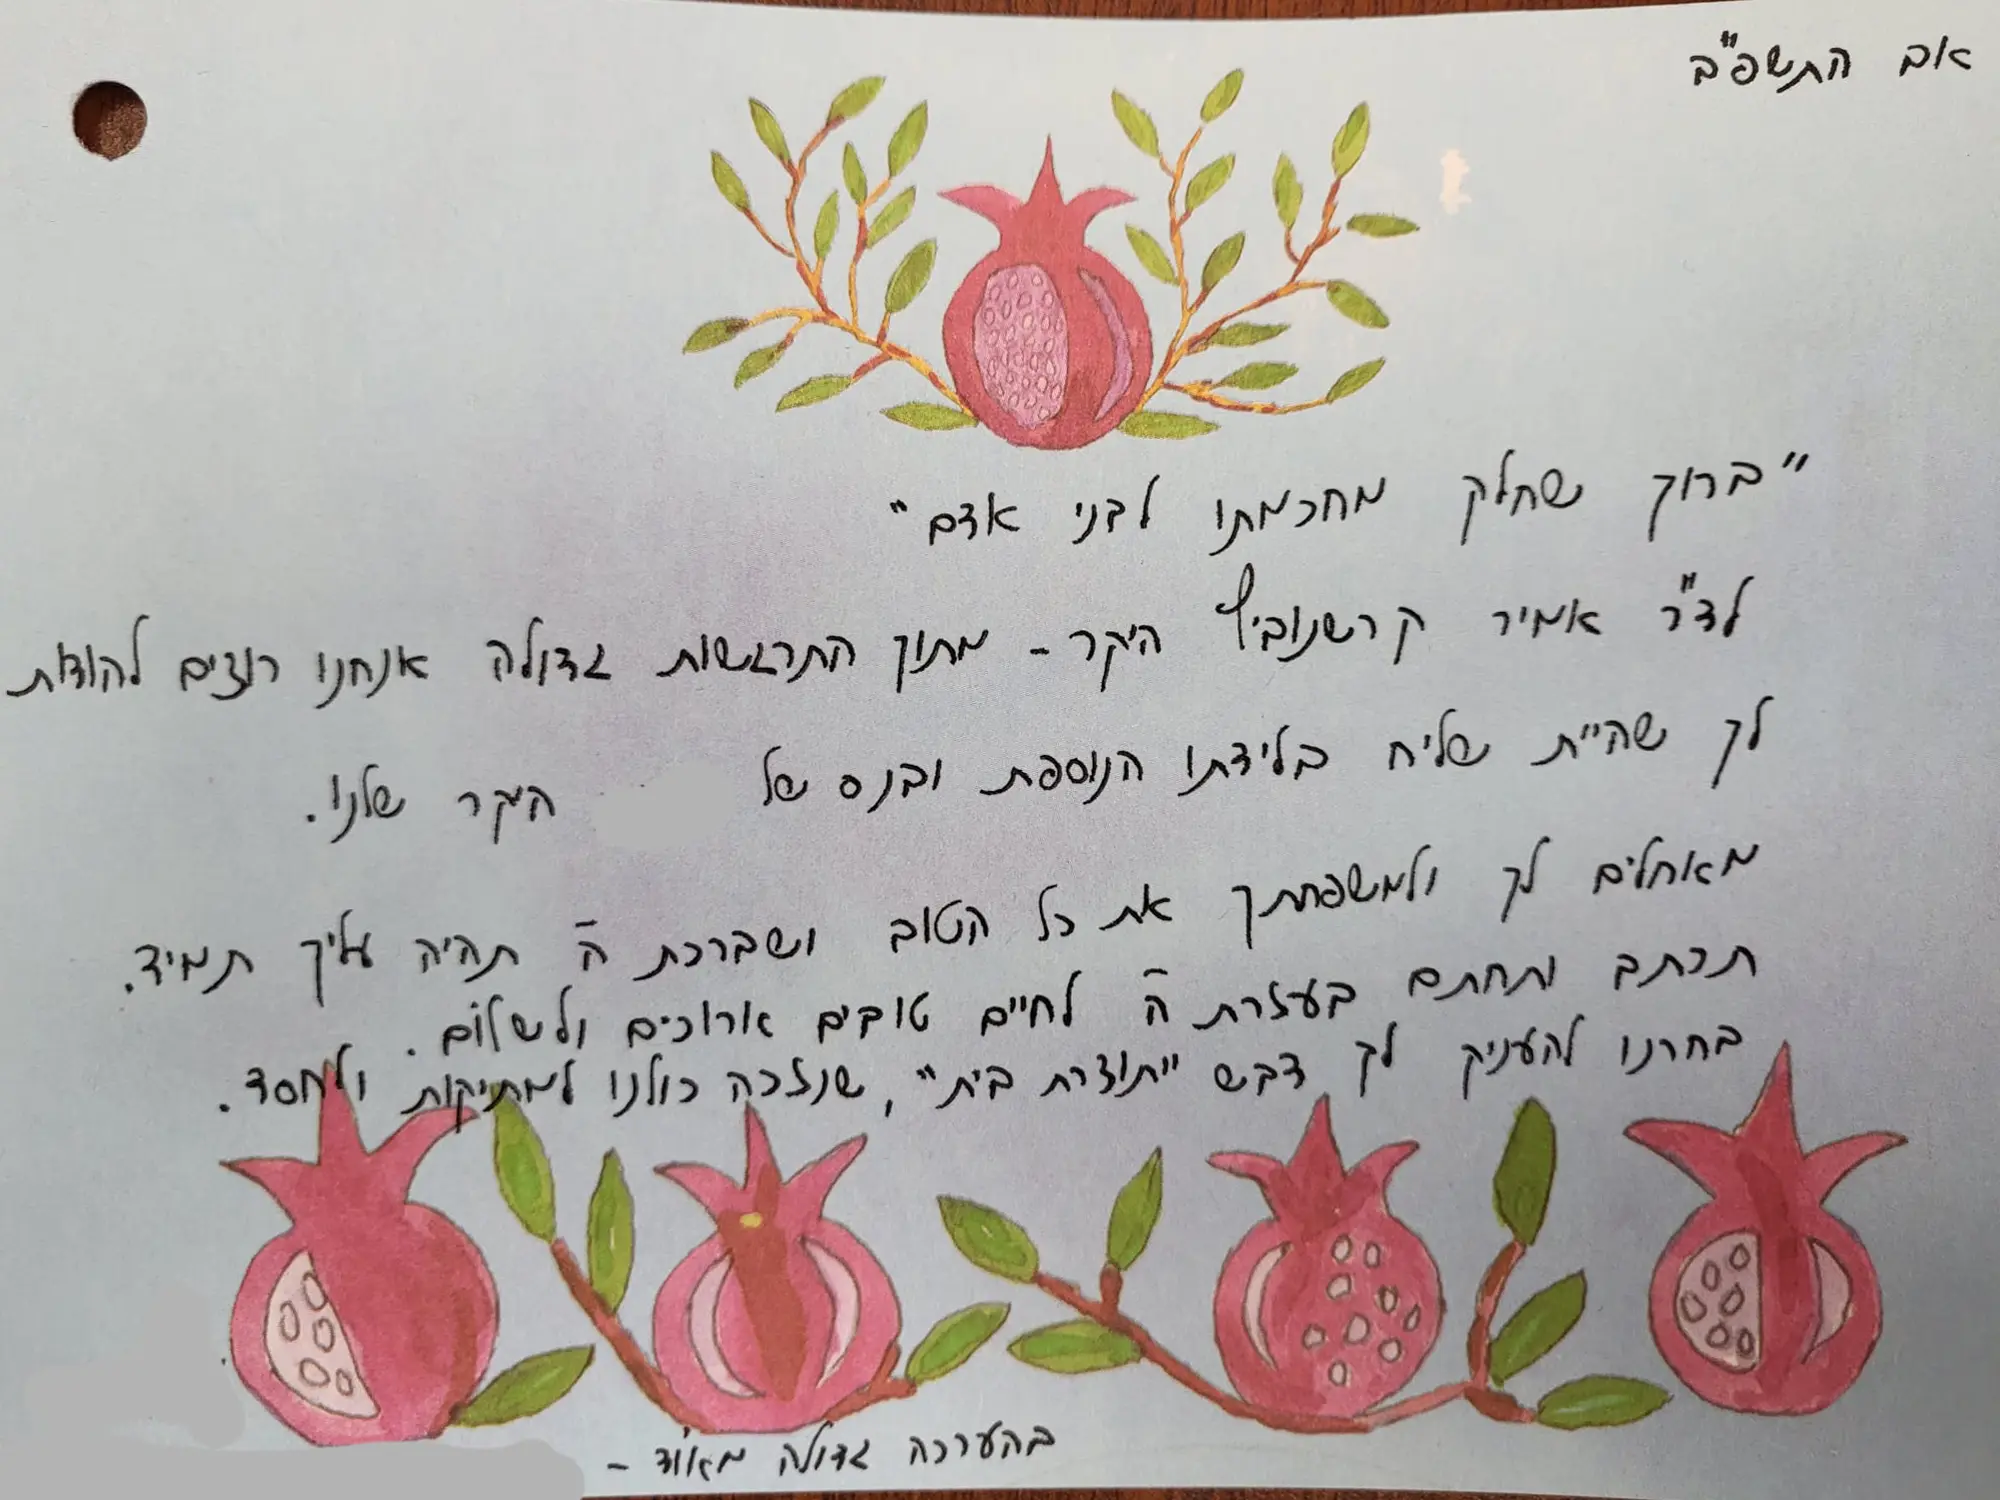 אב התשפ"ב
"ברוך שחלק מחכמתו לבני אדם"
לד"ר אמיר קרשנוביץ היקר - מתוך התרגשות גדולה אנחנו רוצים להודות
לך שהיית שליח בלידתו הנוספת ובנס של היקר שלנו.
מאחלים לך ולמשפחתך את כל הטוב ושברכת ה' תהיה עליך תמיד.
תכתב ותחתם בעזרת ה' לחיים טובים ארוכים ולשלום.
בחרנו להעניק לך דבש "תוצרת בית", שנזכה כולנו למתיקות ולחסד.
בהערכה גדולה מאוד -